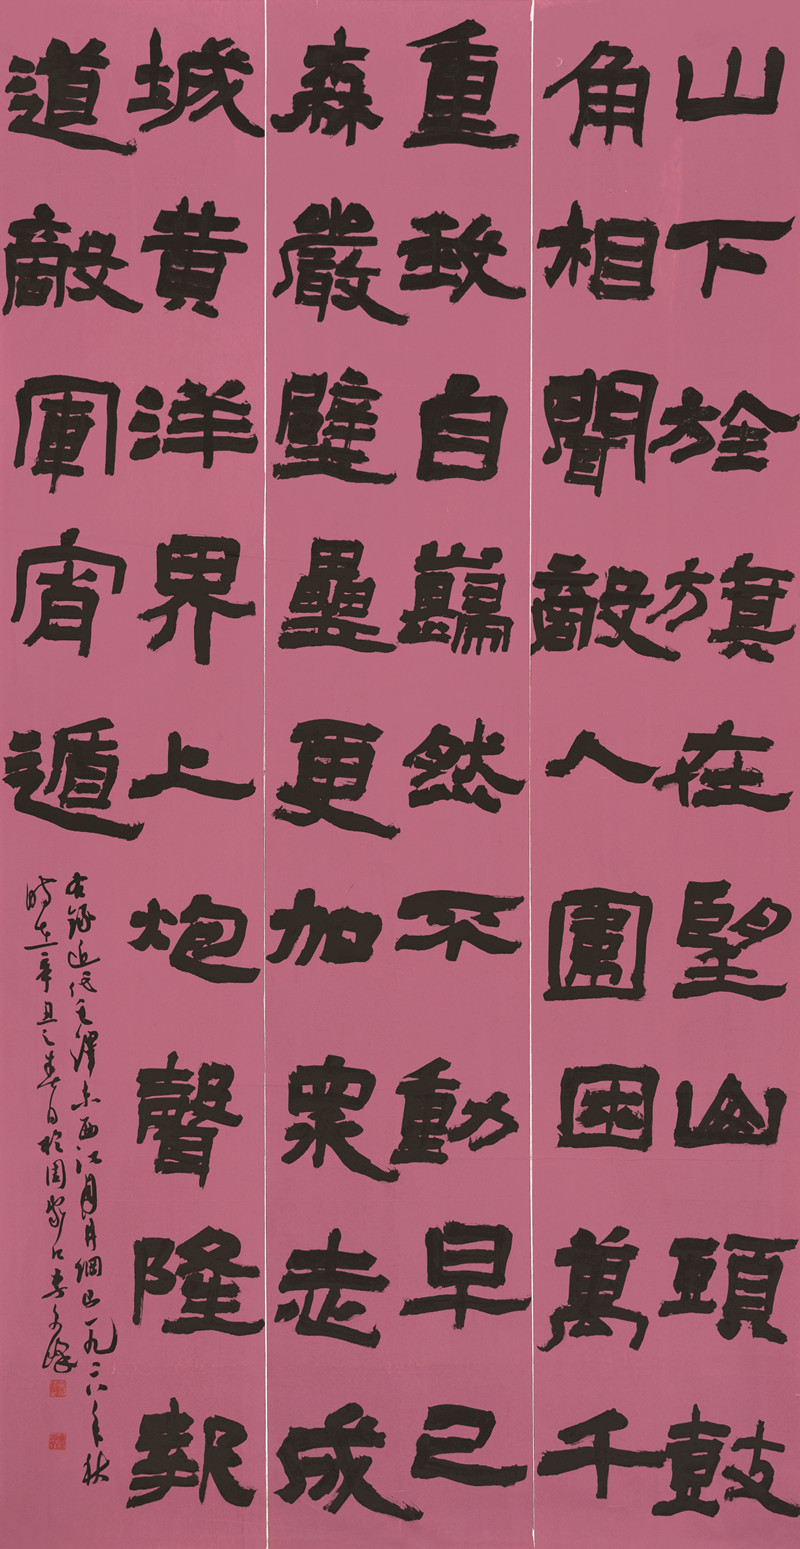 山下旌旗在望山頭鼓
角相聞敵人圍困萬千
重我自巋然不動早已
森嚴壁壘更加眾志成
城黃洋界上炮聲隆報
道敵軍宵遁
右錄近代毛澤東西江月井岡山一九二八年秋
時在辛丑之春日於周家口李文峰